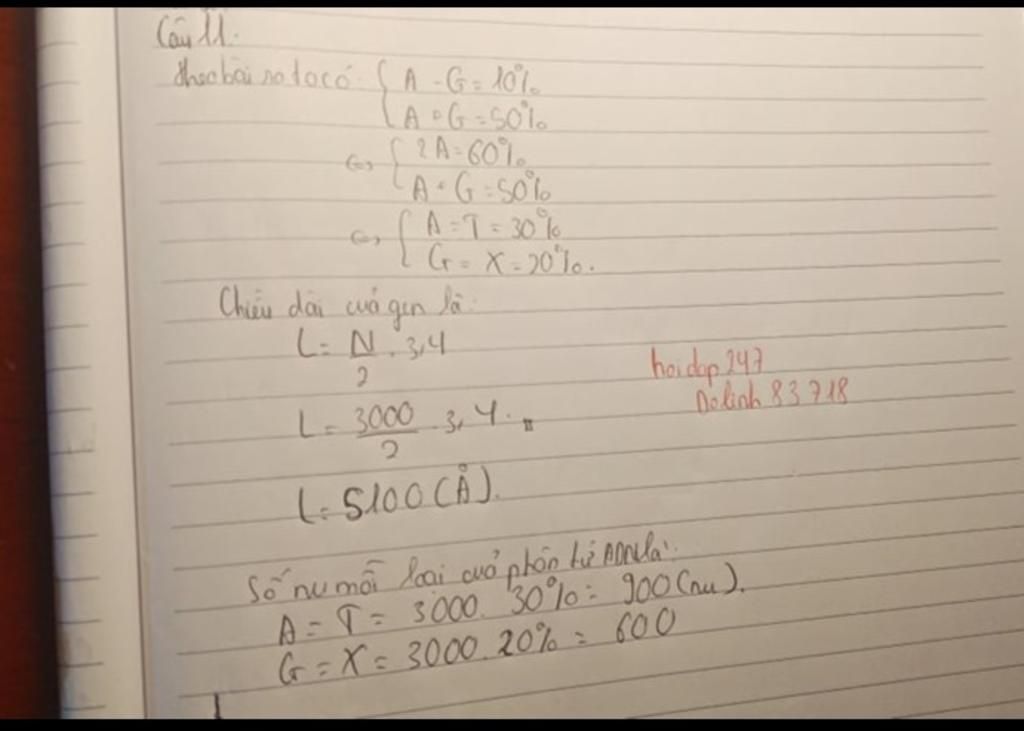 Câu 11.
theo bài ra ta có: { A - G = 10%
A + G = 50%
<=> { 2A = 60%
A + G = 50%
<=> { A = T = 30%
G = X = 20%.
Chiều dài của gen là:
L = N/2 . 3,4
L = 3000/2 . 3,4 .
L = 5100 (Å).
hoidap247
Dolinh 83718
Số nu mỗi loại của phân tử ADN là:
A = T = 3000. 30% = 900 (nu).
G = X = 3000.20% = 600